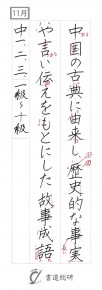 11月
中国の古典に由来し、歴史的な事実
や言い伝えをもとにした故事成語
中一、二、三 一級〜十級
書道総研